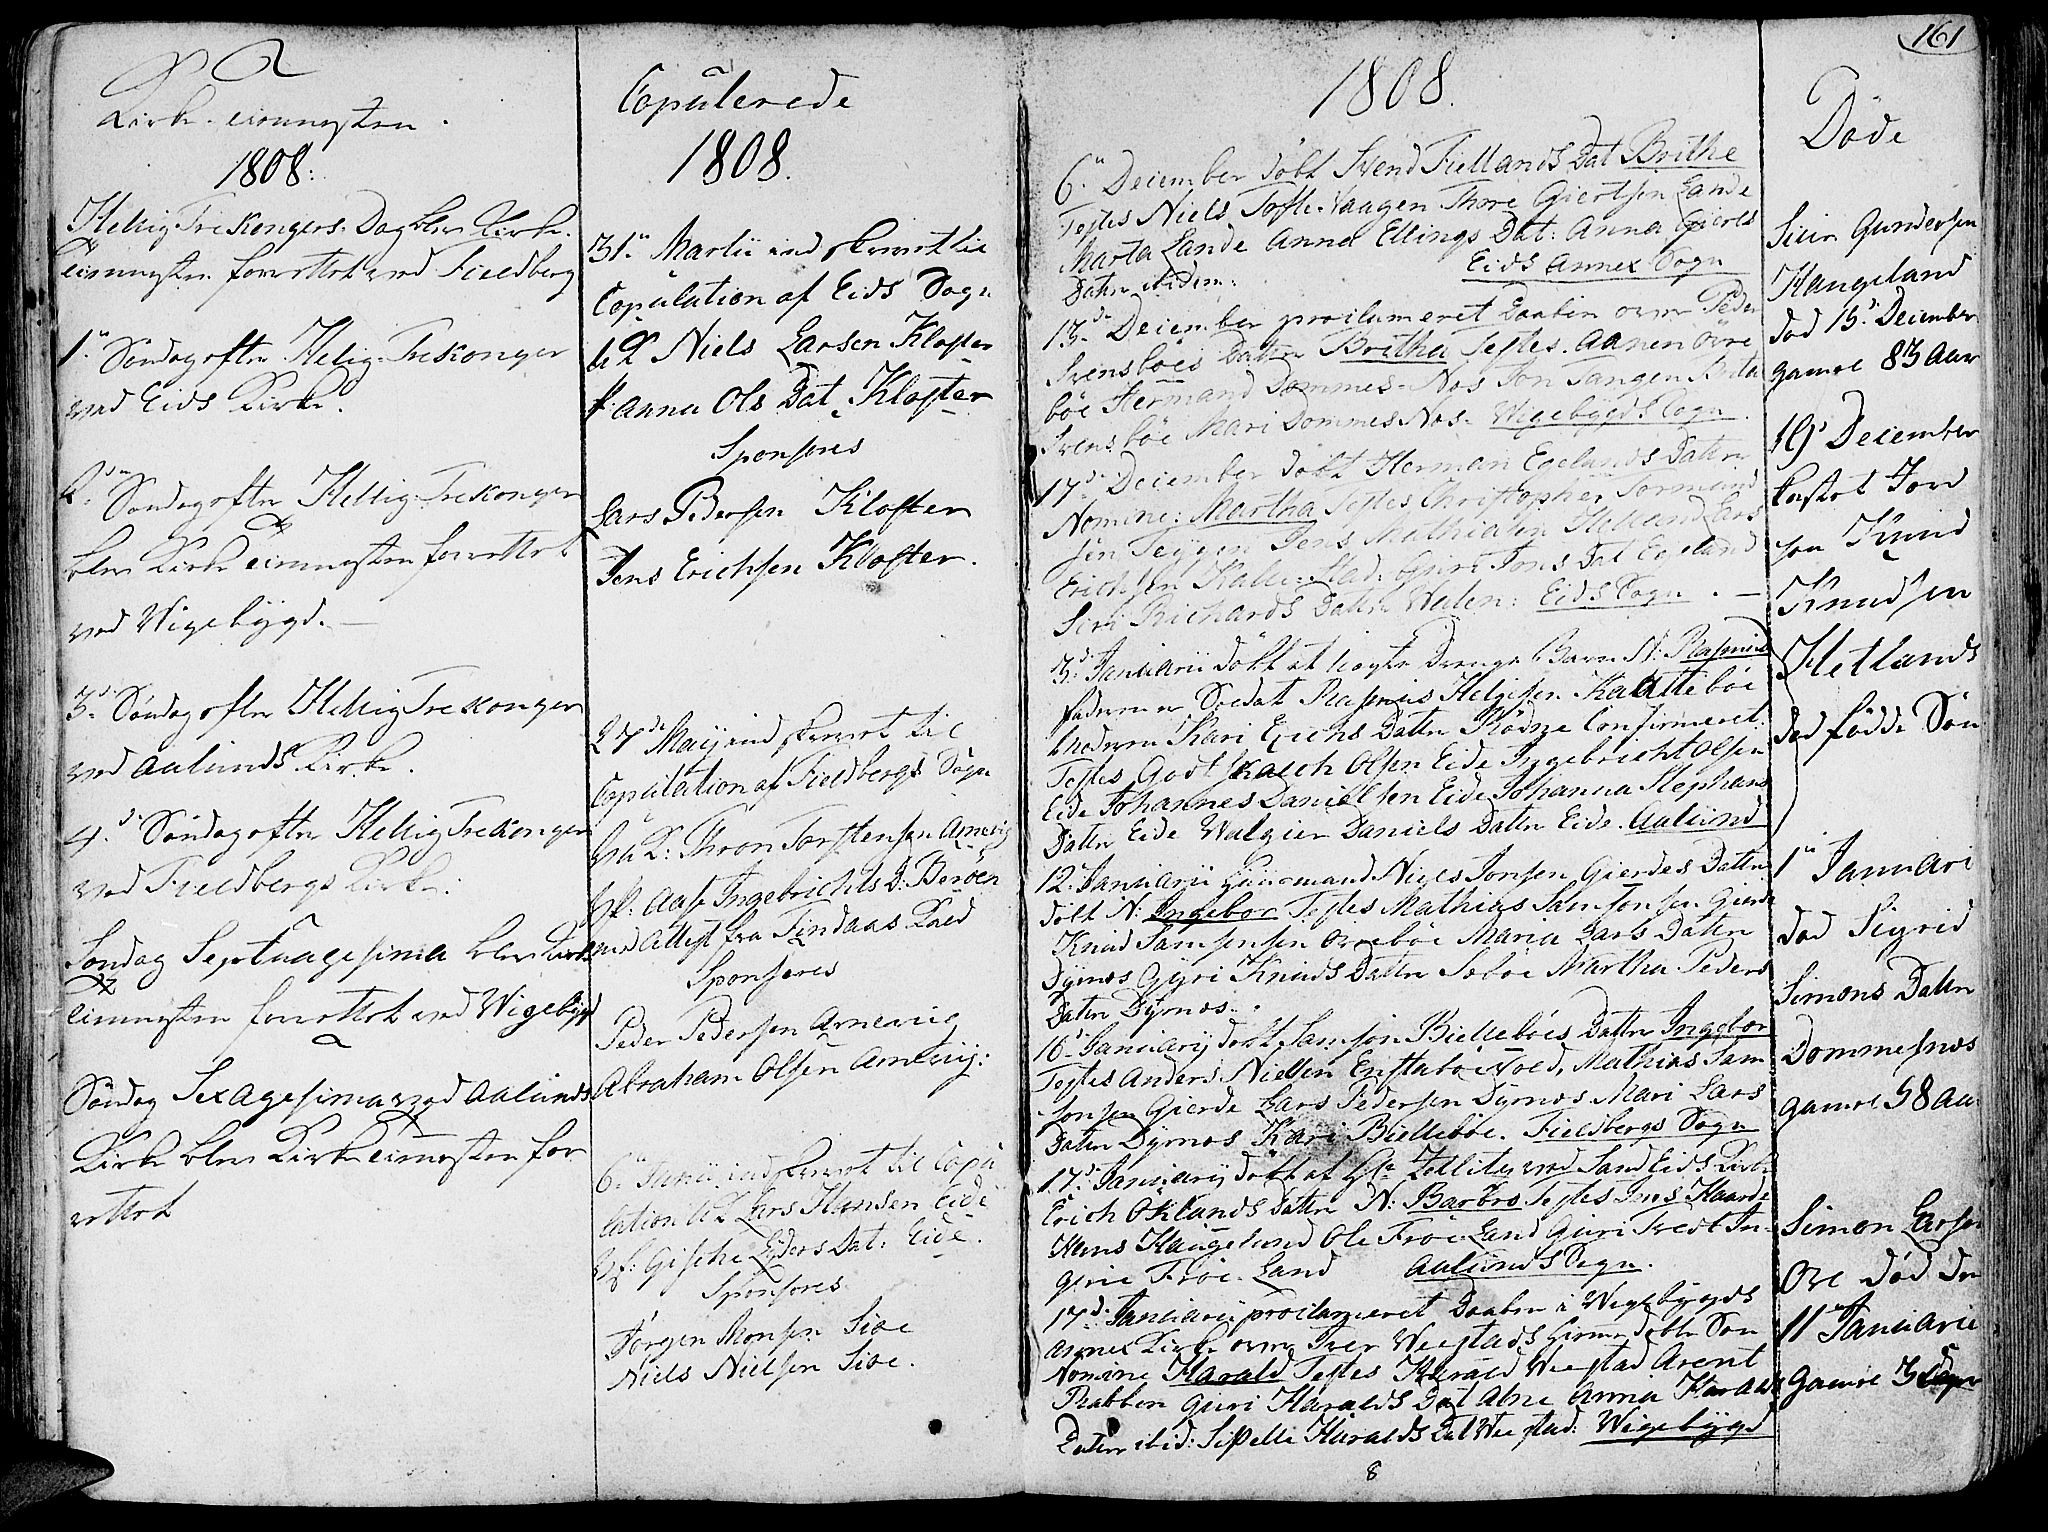 Kirke-
1808:
Hellig Tre Kongers Dag blev Kirke-
forrettet ved Fieldberg
1te Søndag efter Hellig Tre Konger
ved Eids Kirke.
2den Søndag efter Hellig Tre Konger
blev Kirke forrettet
ved Wigebÿgd. —
3de Søndag efter Hellig Tre Konger
ved Aalunds Kirke.
4de Søndag efter Hellig Tre Konger
ved Fieldbergs Kirke.
Søndag Septuagesima blev Kirke
forrettet ved Wigebÿgd
Søndag Sexagesima ved Aalunds
Kirke blev Kirke for
rettet
Copulerede
1808.
31te Martii indskrevet til
Copulation af Eids Sogn
Niels Larsen Kloster
Anna Ols Dat. Kloster
Sponsores
Lars Pedersen Kloster
Jens Erichsen Kloster.
27de Maij indskrevet til
Copulation af Fieldbergs Sogn
Thron Torstensen Arnevig
Aase Ingebrichts D: Berøen
med Attest fra Findaas Kald
Sponsores
Peder Pedersen Arnevig
Abraham Olsen Arnevig:
6te Junii indskrevet til Copu
lation Lars Hansen Eide
Eiders Dat: Eide.
Sponsores
Jørgen Monsen Sioe
Niels Nielsen Sioe.
1808.
6te December døbt Svend Fiellands Dat Brithe
Testes Niels Tofte-Vaagen Thore Giertsen Lande
Marta Lande Anna Ellings Dat: Anna Gierts
Datter ibidem: Eids Annex Sogn
13de December proclameret Daaben over Peder
Svensbøes Datter Britha Testes. Aanen Øvre
bøe Hermand Dommes-Nos Jon Tangen
Svensbøe Mari Dommes Nos- Wigebygds Sogn.
17de December døbt Herman Egelands Datter
Nomine: Martha Testes Christopher
sen Jens Mathiasen Helland Lars
Erichsen Guri Jons Dat Egeland
Siri Richards Datter Eids Sogn. —
3de Januarii døbt et uægte Drenge Barn N: Rasmus
Faderen er Soldat Rasmus Helgesen
Moderen Kari Datter Rødne Confirmeret.
Testes Godtskalch Olsen Eide Ingebricht Olsen
Eide Johannes Danielsen Eide Johanna Stephans
Datter Eide Walgier Daniels Datter Eide. Aalund
12te Januarii Niels Jonsen Gierdes Datter
døbt N: Ingebor Testes Mathias Samsonsen Gierde
Knud Samsonsen Øvrebøe Maria Lars Datter
Dÿrnes Gÿri Knuds Datter Martha Peders
Datter Dÿrnes.
16de Januarij døbt Samson Biellebøes Datter Ingebor
Testes Anders Nielsen Mathias Sam
sonsen Gierde Lars Pedersen Dÿrnes Mari Lars
Datter Dÿrnes Kari Biellebøe. Fieldbergs Sogn
17de Januarij døbt af Hr Zetlitz ved Sand Eids Kirke
Erich Øklands Datter N: Barbro Testes Jens Haarde
Hans Haugeland Ole Frøe-Land Guri In-
grie Frøe-Land Aalunds Sogn.
17de Januarii proclameret Daaben i Wigebÿgds
Annex Kirke over Iver Weestads Søn
Nomine Harald Testes Harald Weestad Arent
Rabben Guri Haralds Dat Alne Anna Haralds
Datter ibid: Siselle Haralds Dat Weestad: Wigebÿgd
8
161
Døde
Siur Gundersen
Haugeland
død 13de December
gamel 83 Aar
19de December
kastet Jord
paa Knud
Knudsen
Hetlands
død fødde Søn
1te Januari
død Sigrid
Simons Datter
Dommesnos
gamel 58 Aar
Simon Larsen
Øre død den
11te Januarii
gamel 3 Dage